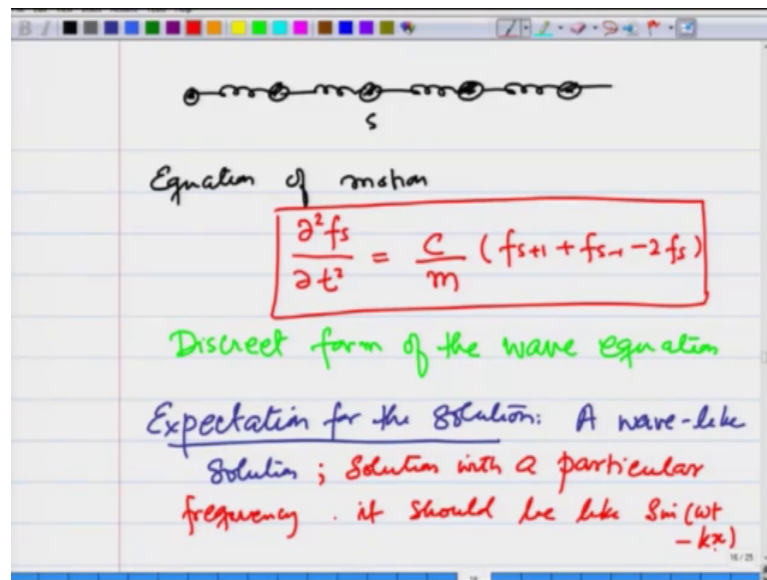 s
Equation of motion
∂²fs/∂t² = C/m (fs+1 + fs-1 - 2fs)
Discreet form of the wave equation
Expectation for the solution: A wave-like
solution; Solution with a particular
frequency. it should be like Sin (ωt
- kx)
16/25